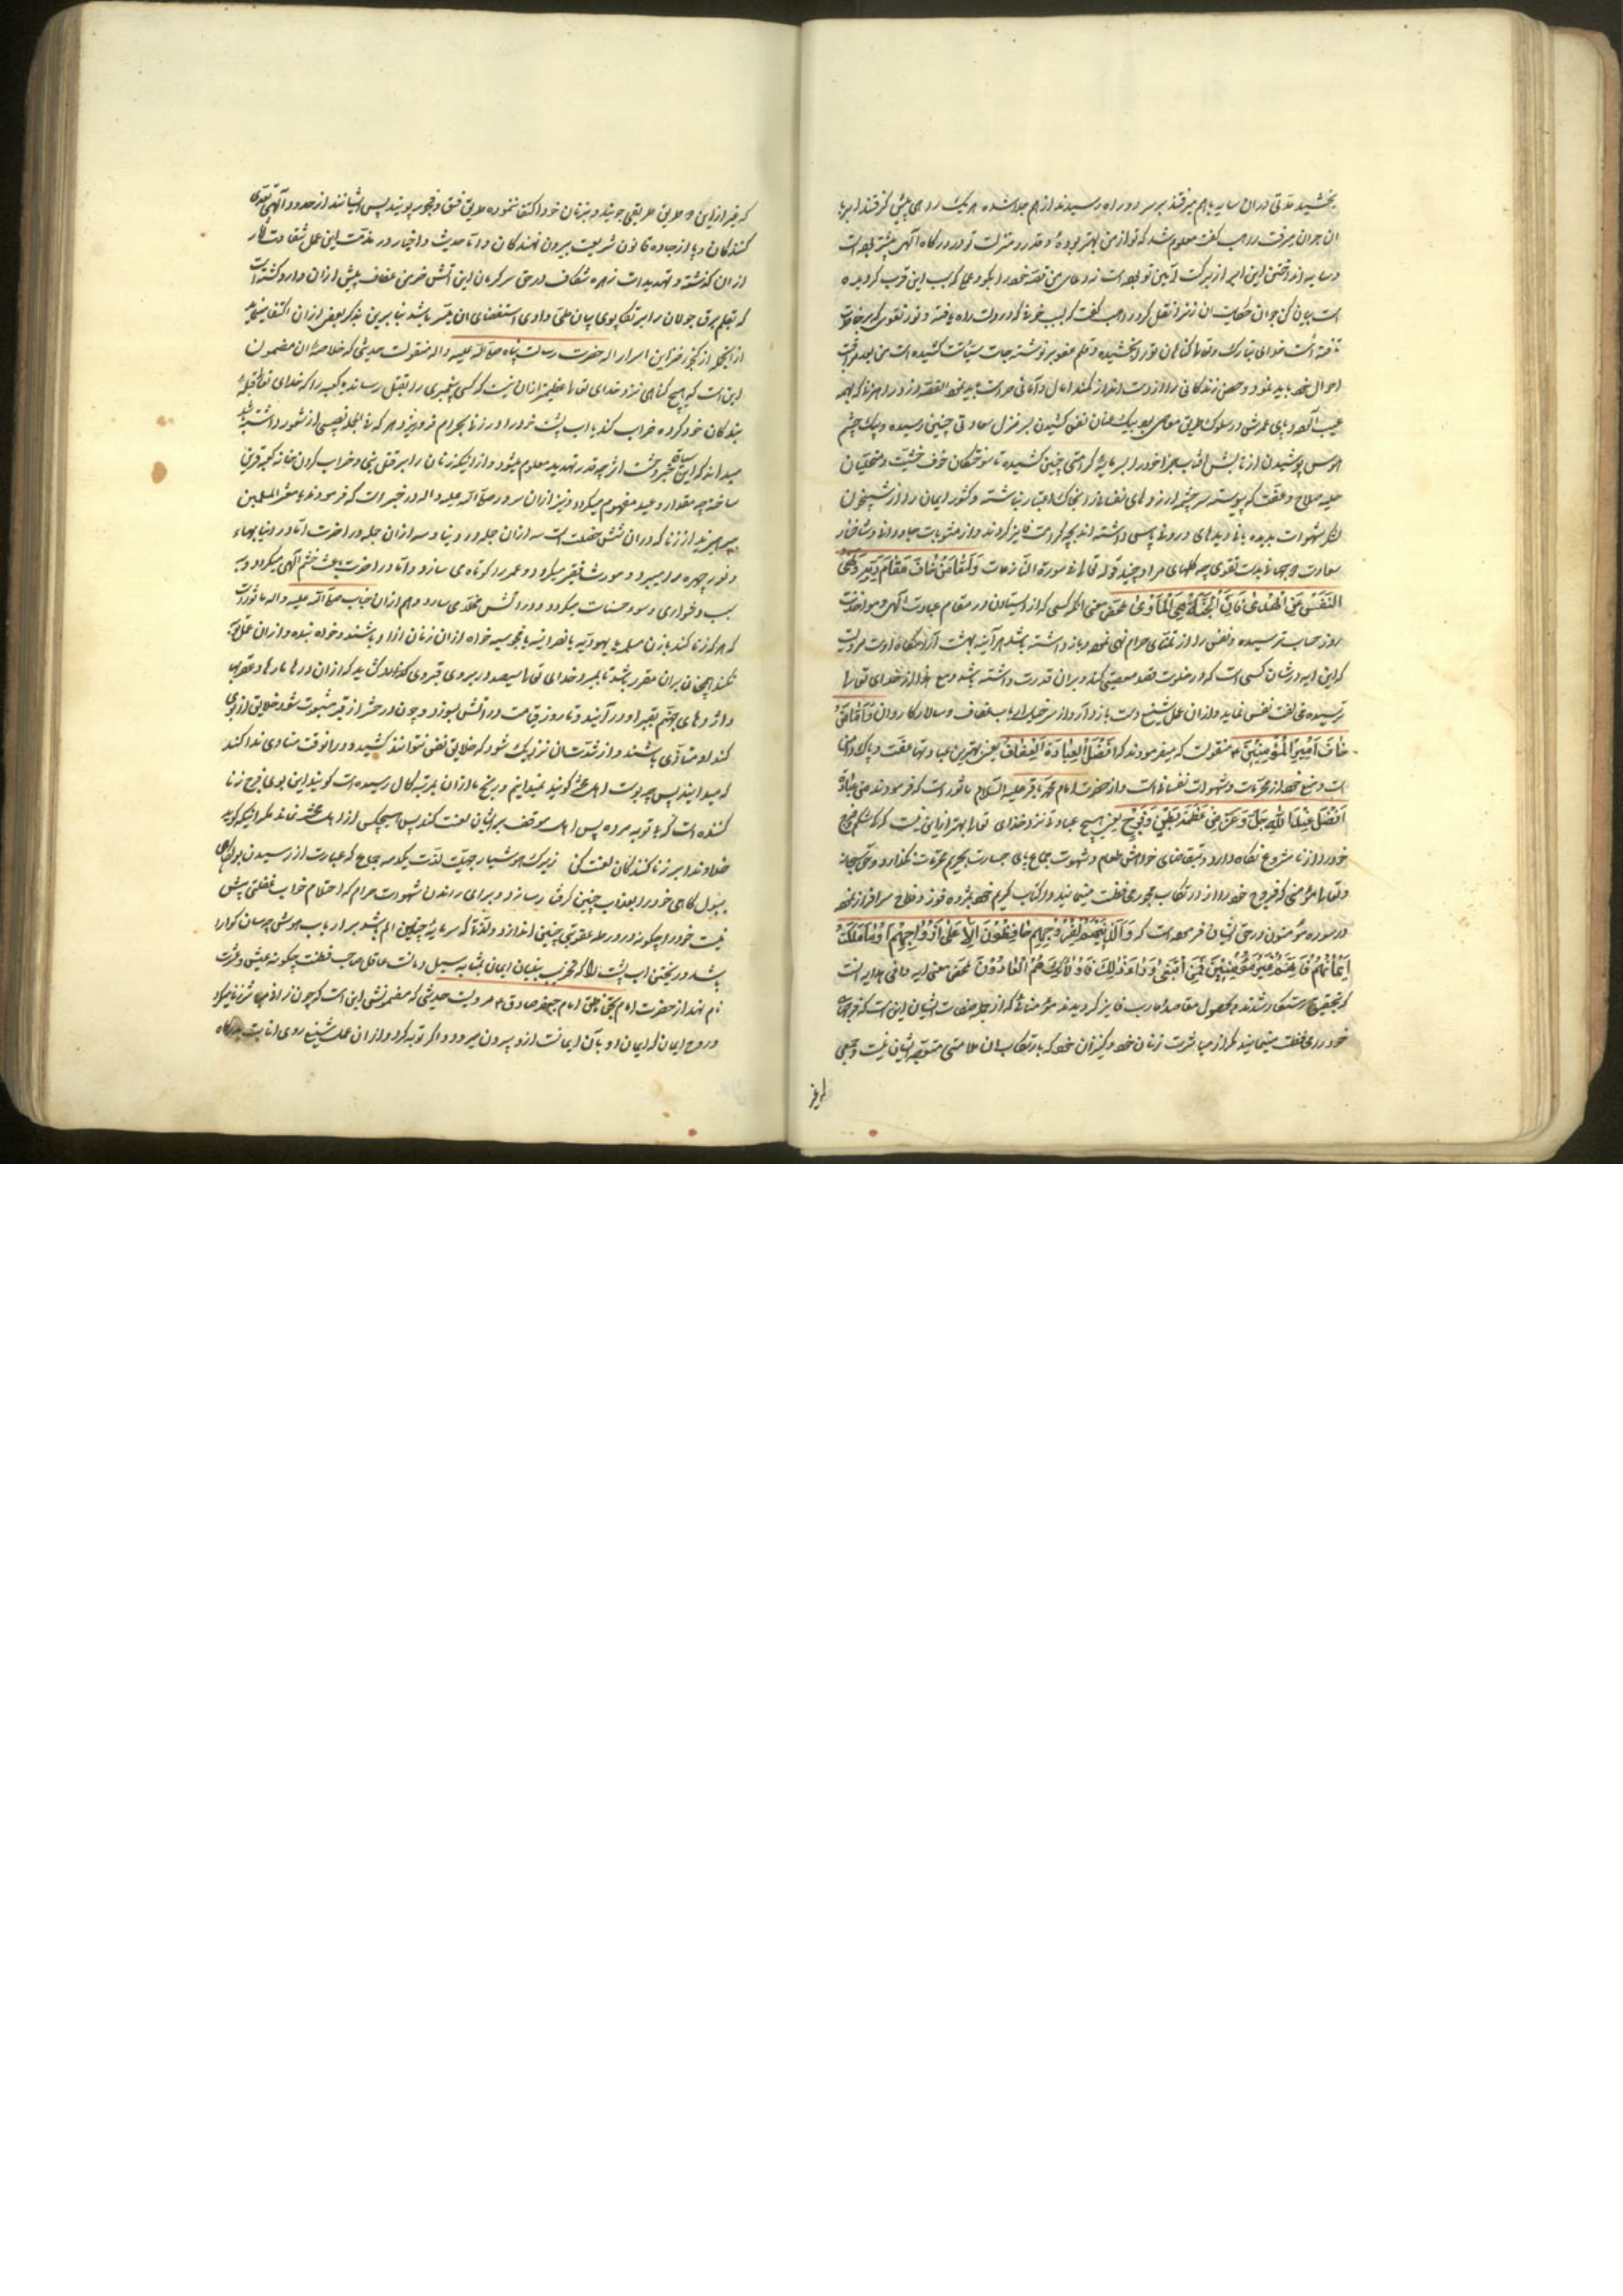 بخشید مدتی در ان سایه باهم میرفتند بر سر دو راه رسیدند از هم جدا شده هر یک راهی پیش گرفتند ابر با
ان جوان میرفت راهب گفت معلوم شد که تو از من بهتر بوده و قدر و منزلت تو در درگاه الهی بیشتر بوده است
است بیان کن جوان حکایت ان زنرا نقل کرد راهب گفت که بسبب خوف که در دلت راه یافته و نور تقوی که بر
خدای تبارک و تعالی گناهان تو را بخشیده و قلم عفو بر نوشته جات سیئات کشیده است من بعد
احوال خود باید نمود و حصن زندگانی را از دست انداز کمند امال و امانی حراست باید
هوس پوشیدن از تابش افتاب جزا خود را بر سایه کرامتی چنین کشیده تا سوختگان خوف خشیت و متحلیان
حلیه صلاح و عفت که پیوسته سرچشمه ارزوهای نفسانی را بخاک اعتبار انباشته و کشور ایمان را از شبیخون
لشکر شهوات
سعادت دو جهانی بدست تقوی چه گلهای مراد چیند قوله تعالی فی سورة النازعات وَاَمّا مَنْ خافَ مَقامَ رَبِّه وَنَهَی
النَّفْسَ عَنِ الْهَوی فَاِنَّ الْجَنَّةَ هِیَ الْمَأْوی محصل معنی انکه کسی که از ایستادن در مقام عبادت الهی و مواخذه
روز حساب ترسیده و نفس را از تمنای حرام نهی نموده باز داشته باشد هر آینه بهشت آرامگاه اوست مرویست
که این ایه در شان کسی است که در خلوت قصد معصیتی کند و بر ان قدرت داشته باشد و مع هذا از خدای تعالی
ترسیده مخالفت نفس نماید و از ان عمل شنیع دست باز دارد
اَمیرِ الْمُؤْمِنینَ ع منقولست که میفرمودند که اَفْضَلُ الْعِبادَةِ الْعِفافُ یعنی بهترین عبادتها عفت و پاک دامنی
است و منع خود از محرمات و شهوات نفسانی است و از حضرت امام محمد باقر علیه السلام ماثور است که فرمودند ما من عِبادَةٍ
اَفْضَلَ عِنْدَ اللّهِ جَلَّ وَعَزَّ مِنْ عِفَّةِ بَطْنٍ وَفَرْجٍ یعنی هیچ عبادتی نزد خدای تعالی بهتر از این نیست که کسی شکم و فرج
خود را از نامشروع نگاه دارد و بمقتضای خواهش طعام و شهوت جماع پای جسارت بحریم محرمات نگذارد و حق سبحانه
و تعالی مؤمنی که فروج خود را از ارتکاب فجور محافظت مینمایند در کتاب کریم خود بمژده فوز و فلاح سرافراز نموده
در سوره مؤمنون در حق ایشان فرموده است که وَالَّذینَ هُمْ لِفُرُوجِهِمْ حافِظُونَ اِلاّ عَلی اَزْواجِهِمْ اَوْ ما مَلَکَتْ
اَیْمانُهُمْ فَاِنَّهُمْ غَیْرُ مَلُومینَ فَمَنِ ابْتَغی وَراءَ ذلِکَ فَاُولئِکَ هُمُ الْعادُونَ محصل معنی ایه وافی هدایه انست
که بتحقیق رستگار شدند و بحصول مقاصد و مارب فایز گردیدند مؤمنانی که از جمله صفات ایشان اینست که فرجهای
خود را محافظت مینمایند مگر از مباشرت زنان خود و کنیزان خود که بارتکاب ان ملامتی متوجه ایشان نیست و جمعی
که غیر از این دو طریق طریقی جویند و بزنان خود اکتفا ننموده طریق فسق و فجور پویند پس ایشانند از حدود الهی تعدی
کنندگان و پا از جاده قانون شریعت بیرون نهندگان و اما حدیث و اخبار در مذمت این عمل شقاوت اثار
از ان گذشته و تهدیدات زهره شکاف در حق سرگرمان این اتش خرمن عفاف بیش از ان وارد گشته است
که بقلم برق جولان و ابر تکاپوی بیان طی وادی استقصای ان میسر باشد بنابرین بذکر بعضی از ان اکتفا مینماید
از انجمله از گنجور خزاین اسرار اله حضرت رسالت پناه صلی الله علیه واله منقولست حدیثی که خلاصه ان مضمون
این است که هیچ گناهی نزد خدای تعالی عظیمتر از ان نیست که کسی پیغمبری را بقتل رساند یا کعبه را که خدای تعالی قبله
بندگان خود کرده خراب کند یا اب پشت خود را در زنی بحرام فرو ریزد هر که فی الجمله نصیبی از شعور داشته باشد
میداند که از این سیاق خبر وحشت اثر چه قدر تهدید معلوم میشود و از اینکه زنا را برابر قتل نبی و خراب کردن خانه کعبه قرین
ساخته چه مقدار وعید مفهوم میگردد و نیز از ان سرور صلی الله علیه واله در خبر است که فرمودند یا معشر المسلمین
بپرهیزید از زنا که در ان شش خصلت است سه از ان جمله در دنیا و سه از ان جمله در اخرت اما در دنیا بهاء
و نور چهره را میبرد و مورث فقر میگردد و عمر را کوتاه می سازد و اما در اخرت باعث خشم الهی میگردد و
سبب دشواری و سوء حساب میگردد و در اتش مخلد می سازد و هم از ان جناب صلی الله علیه واله ماثور است
که هر که زنا کند با زن مسلمه یا یهودیه یا نصرانیه یا مجوسیه خواه از ان زنان ازاد باشند و خواه بنده و از ان عمل توبه
نکند و همچنان بر ان مقرر باشد تا بمیرد خدای تعالی سیصد در بروی قبر وی گشاید که از ان درها مارها و عقربها
و اژدهای جهنم بقبر او در آیند و تا روز قیامت در اتش بسوزد و چون در حشر از قبر مبعوث شود خلایق از بوی
گند او متاذی باشند و از شدت ان نزدیک شود که خلایق نفس نتوانند کشید و در انوقت منادی ندا کند
که میدانید این چه بوست اهل محشر گویند نمیدانیم و رنج ما از ان بمرتبه کمال رسیده است گویند این بوی فرج زنا
کننده است که بی توبه مرده پس اهل موقف بر ایشان لعنت کنند پس هیچکس از اهل محشر نماند مگر اینکه گوید
خداوندا بر زنا کنندگان لعنت کن زیرک هوشیار بجهت لذت یکدمه جماع که عبارت از رسیدن بول گاهی
ببول گاهی خود را بعذاب چنین گرفتار سازد و برای راندن شهوت حرام که احتلام خواب غفلتی بیش
نیست خود را چگونه در ورطه عقوبتی چنین اندازد و لذتی که سرمایه چندین الم باشد بر ارباب هوش چه سان گوارا
باشد و ریختن اب پشت را که مخرب بنیان ایمان بمثابه سیل دمانست عاقل صاحب فطنت چگونه عیش و عشرت
نام نهد از حضرت امام بحق ناطق امام جعفر صادق ع مرویست حدیثی که مضمونش این است که چون زانی مباشر زنا میگردد
و روح ایمان که ایمان او بآن ایمانست ازو بیرون میرود و اگر توبه کرد و از ان عمل شنیع روی انابت بدرگاه